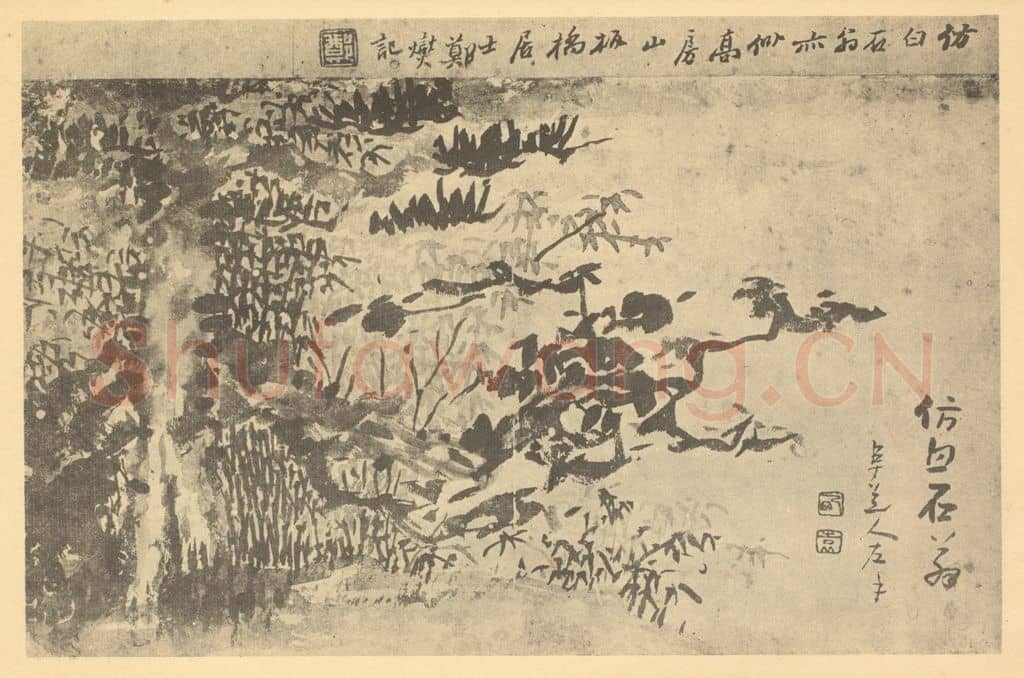 仿白石翁亦似高房山板橋居士鄭燮記
仿白石翁
阜道人左手
Shufawang.CN